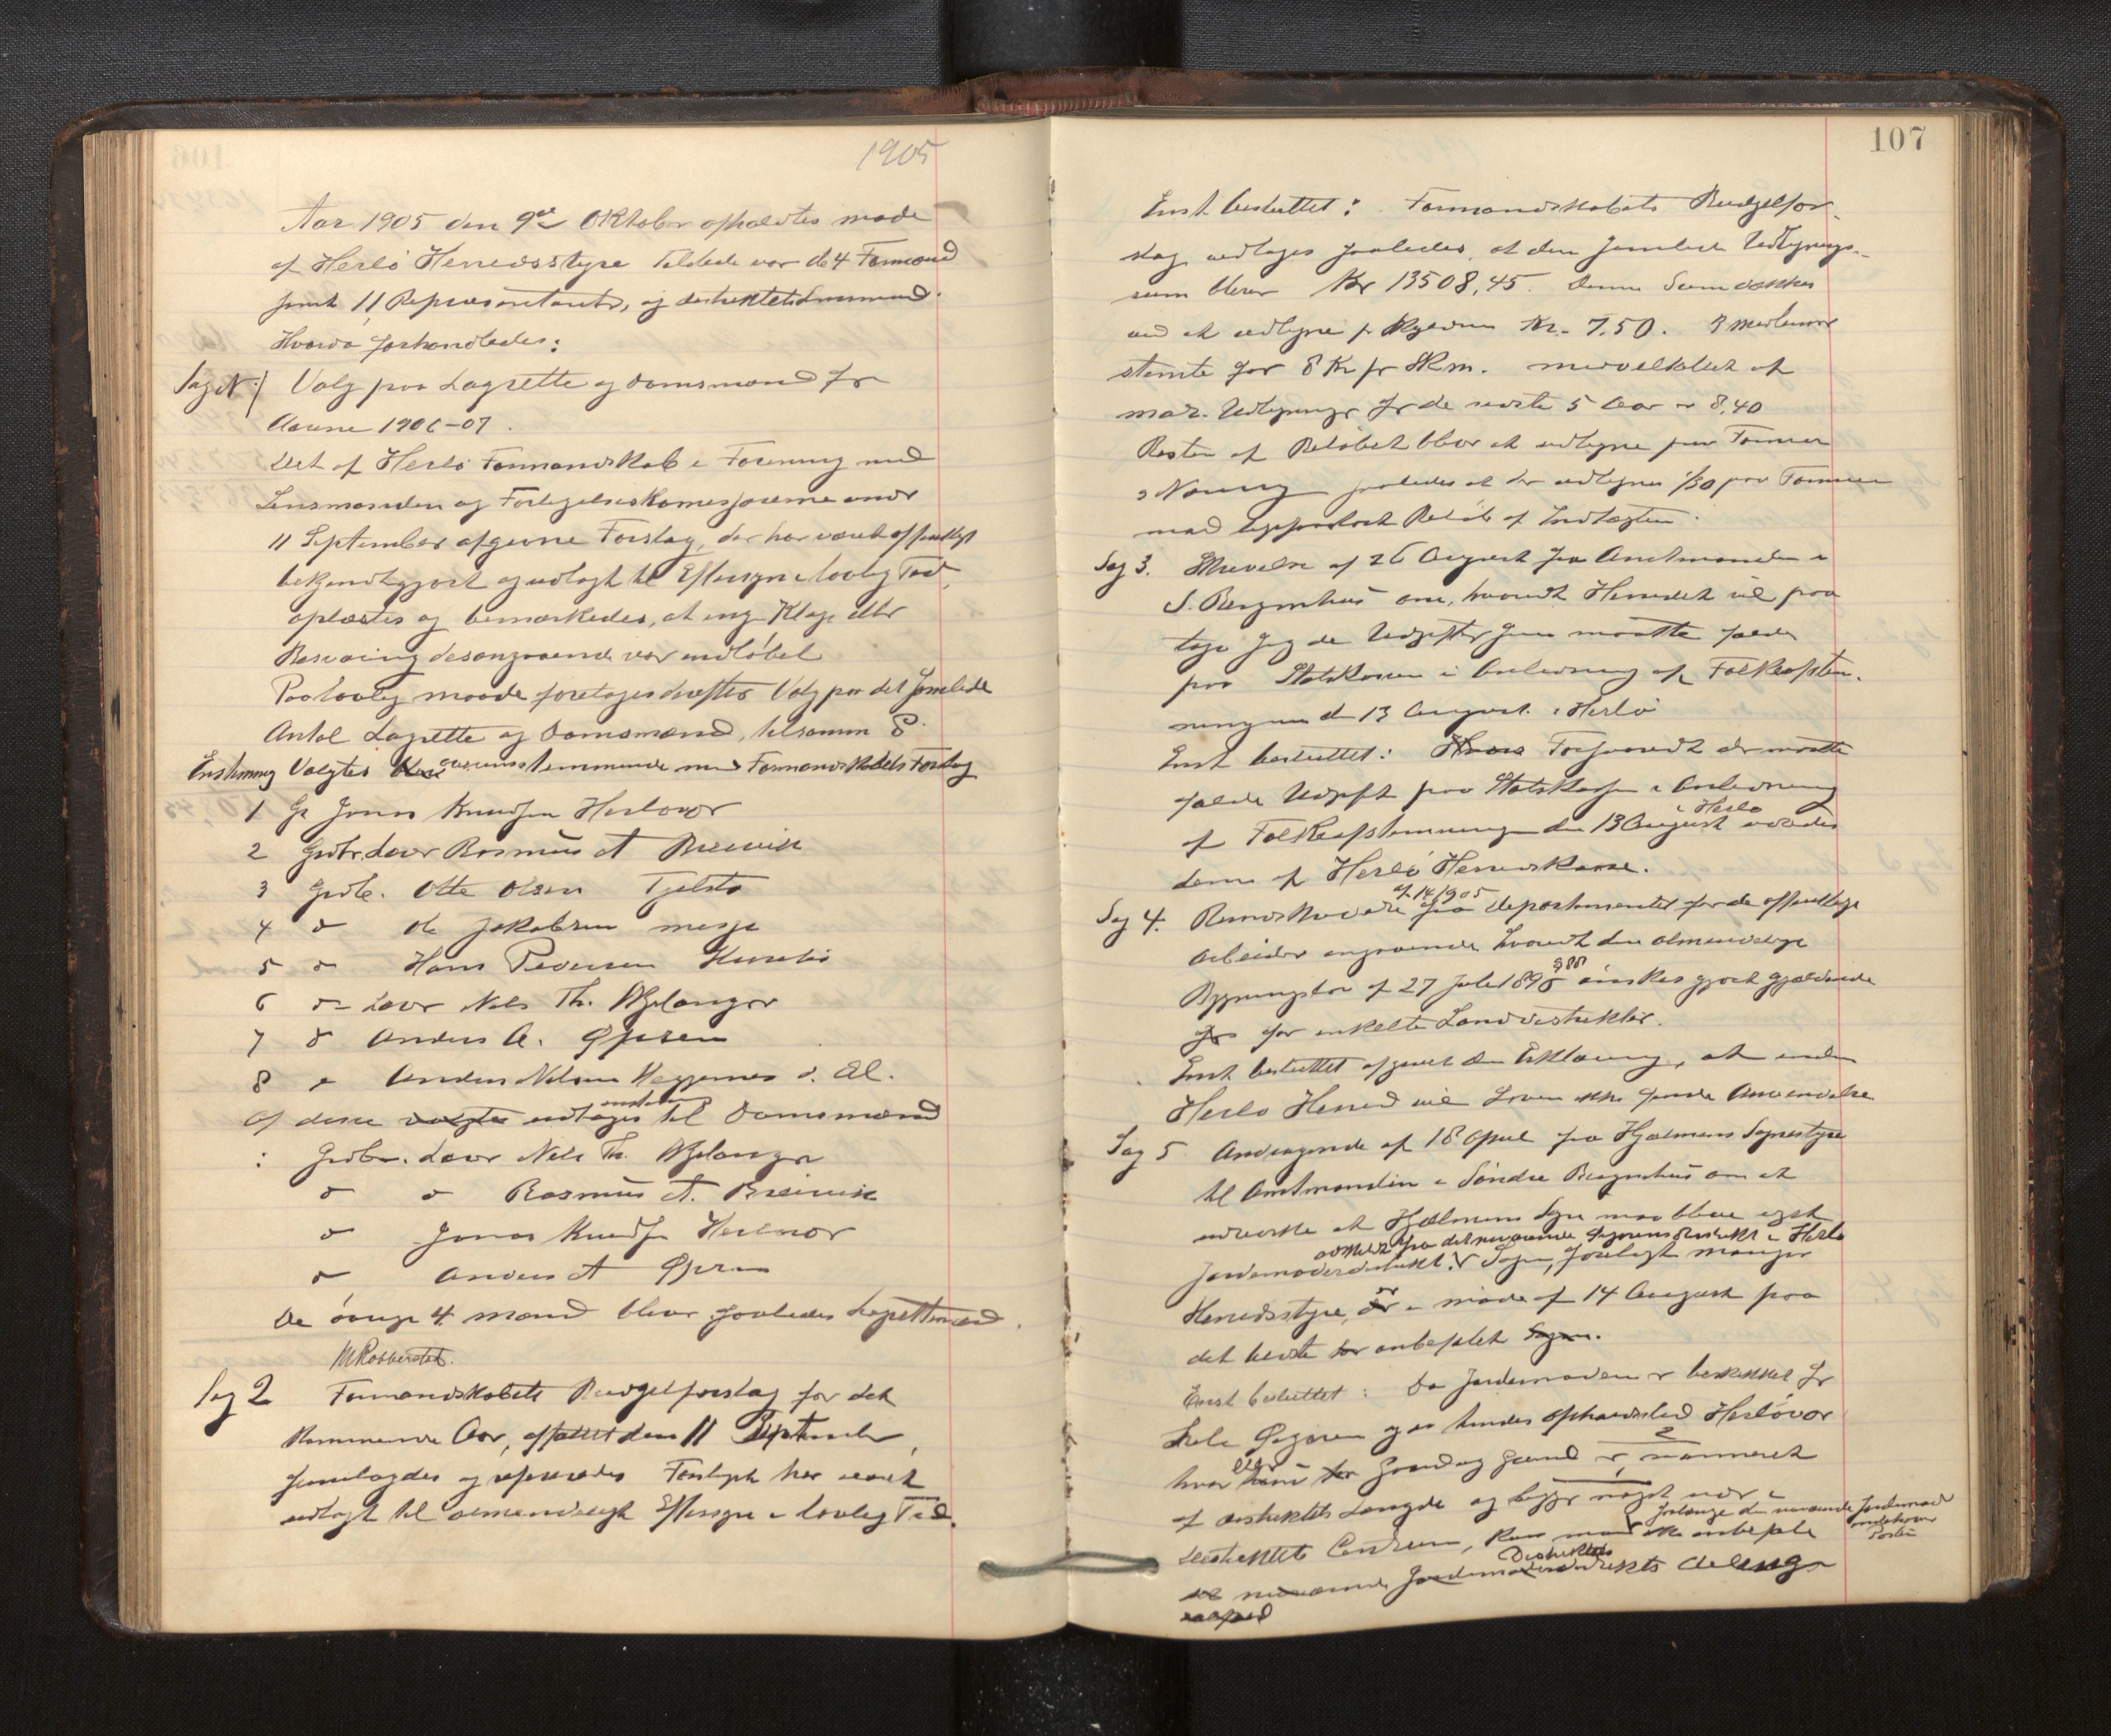 1905
Aar 1905 den 9de Oktober afholdtes møde
af Herlø Herredsstyre tilstede var de 4 Formænd
samt 11 Repræsentanter, og distriktets Lensmand.
Hvorda forhandledes:
Sag 1 Valg paa Lagrette og Domsmænd for
Aarene 1906-07.
Det af Herlø Formandskab i Forening med
Lensmanden og Forligelseskomesjærerne under
11 September afgivne Forslag, der har været offentligt
bekjendtgjort og udlagt til Eftersyn i lovlig Tid,
oplæstes og bemærkedes, at ingen Klage eller
Besværing desangaaende var indløbet
Paa lovlig maade foretages derefter Valg paa det samlede
Antal Lagrette og Domsmænd, tilsammen 8.
Enstemmig Valgtes overensstemmende med Formandskabets Forslag
1 Gr Jonas Knudsen Herløvær
2 Grdbr. Lavr Rasmus A Breivik
3 Grdbr. Otte Olsen Tjelstø
4 " Ole Jakobsen Misje
5 " Hans Pedersen
6 " Lavr Nils Th. Bjelanger
7 " Anders A. Øpsen
8 " Anders Nilsen Heggernes d. El.
Af disse valgte udtages enstemmig til Domsmænd
: Grdbr. Lavr Nils Th. Bjelanger
" " Rasmus A. Breivik
" Jonas Knudsen Herløvær
" Anders A Øpsen
De øvrige 4 mænd bliver saaledes Lagrettemænd.
M Rabbersted.
Sag 2 Formandskabets Budgetforslag for det
kommende Aar, affattet den 11 September,
fremlagdes og refereredes Forslaget har været
udlagt til almindeligt Eftersyn i lovlig Tid.
107
Enst besluttet: Formandskabets Budgetfor-
slag vedtages saaledes, at den samlede Udlignings-
sum bliver Kr 13508,45. Denne Sum dækkes
ved at udligne pr Skyldmark Kr. 7,50. 3 Medlemmer
stemte for 8 Kr pr Skm.
matr. Udligninger for de sidste 5 Aar er 8,40
Resten af Beløbet bliver at udligne paa Formue
& Næring saaledes at der udlignes 1/30 paa Formuen
med Beløb af Indtægten.
Sag 3. Skrivelse af 26 August fra Amtmanden i
S. Bergenhus om, hvorvidt Herredet vil paa
tage sig de Udgifter som maatte falde
paa Statskassen i Anledning af Folkeafstem-
ningen den 13 August i Herlø
Enst besluttet: Forsaavidt der maatte
falde Udgift paa Statskassen i Anledning
af Folkeafstemningen den 13 August i Herlø udredes
denne af Herlø Herredskasse.
Sag 4. Rundskrivelse af 14/9 05 fra departementet for de offentlige
Arbeider angaaende hvorvidt den almindelige
Bygningslov af 27 Juli 1896 ønskes gjort gjældende
for enkelte Landdistrikter.
Enst besluttet afgivet den Erklæring, at inden
Herlø Herred vil Loven ikke finde Anvendelse
Sag 5 Andragende af 18 April fra Hjælmens Sognestyre
til Amtmanden i Søndre Bergenhus om at
udvirke at Hjælmens Sogn maa blive eget
Jordemoderdistrikt adskilt fra det nuværende Sognens distrikt i Herlø. Sagen, forelagt Manger
Herredsstyre, er i møde af 14 August paa
det bedste anbefalet.
Enst besluttet: Da Jordemoderen er beskikket for
hele og da hendes opholdssted Herløvær
hvor hun har Gaard og Grund er i nærmeret
af distriktets Længde og ligger noget nær i
Distriktets Centrum, kan man ikke anbefale
saalænge den nuværende Jordemoder indehaver Posten
det nuværende Jordemoderdistrikts Distriktets deling